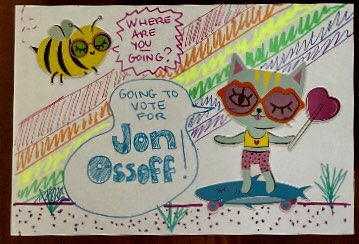 WHERE
ARE
YOU
GOING?
GOING TO
VOTE
FOR
Jon
Ossoff!